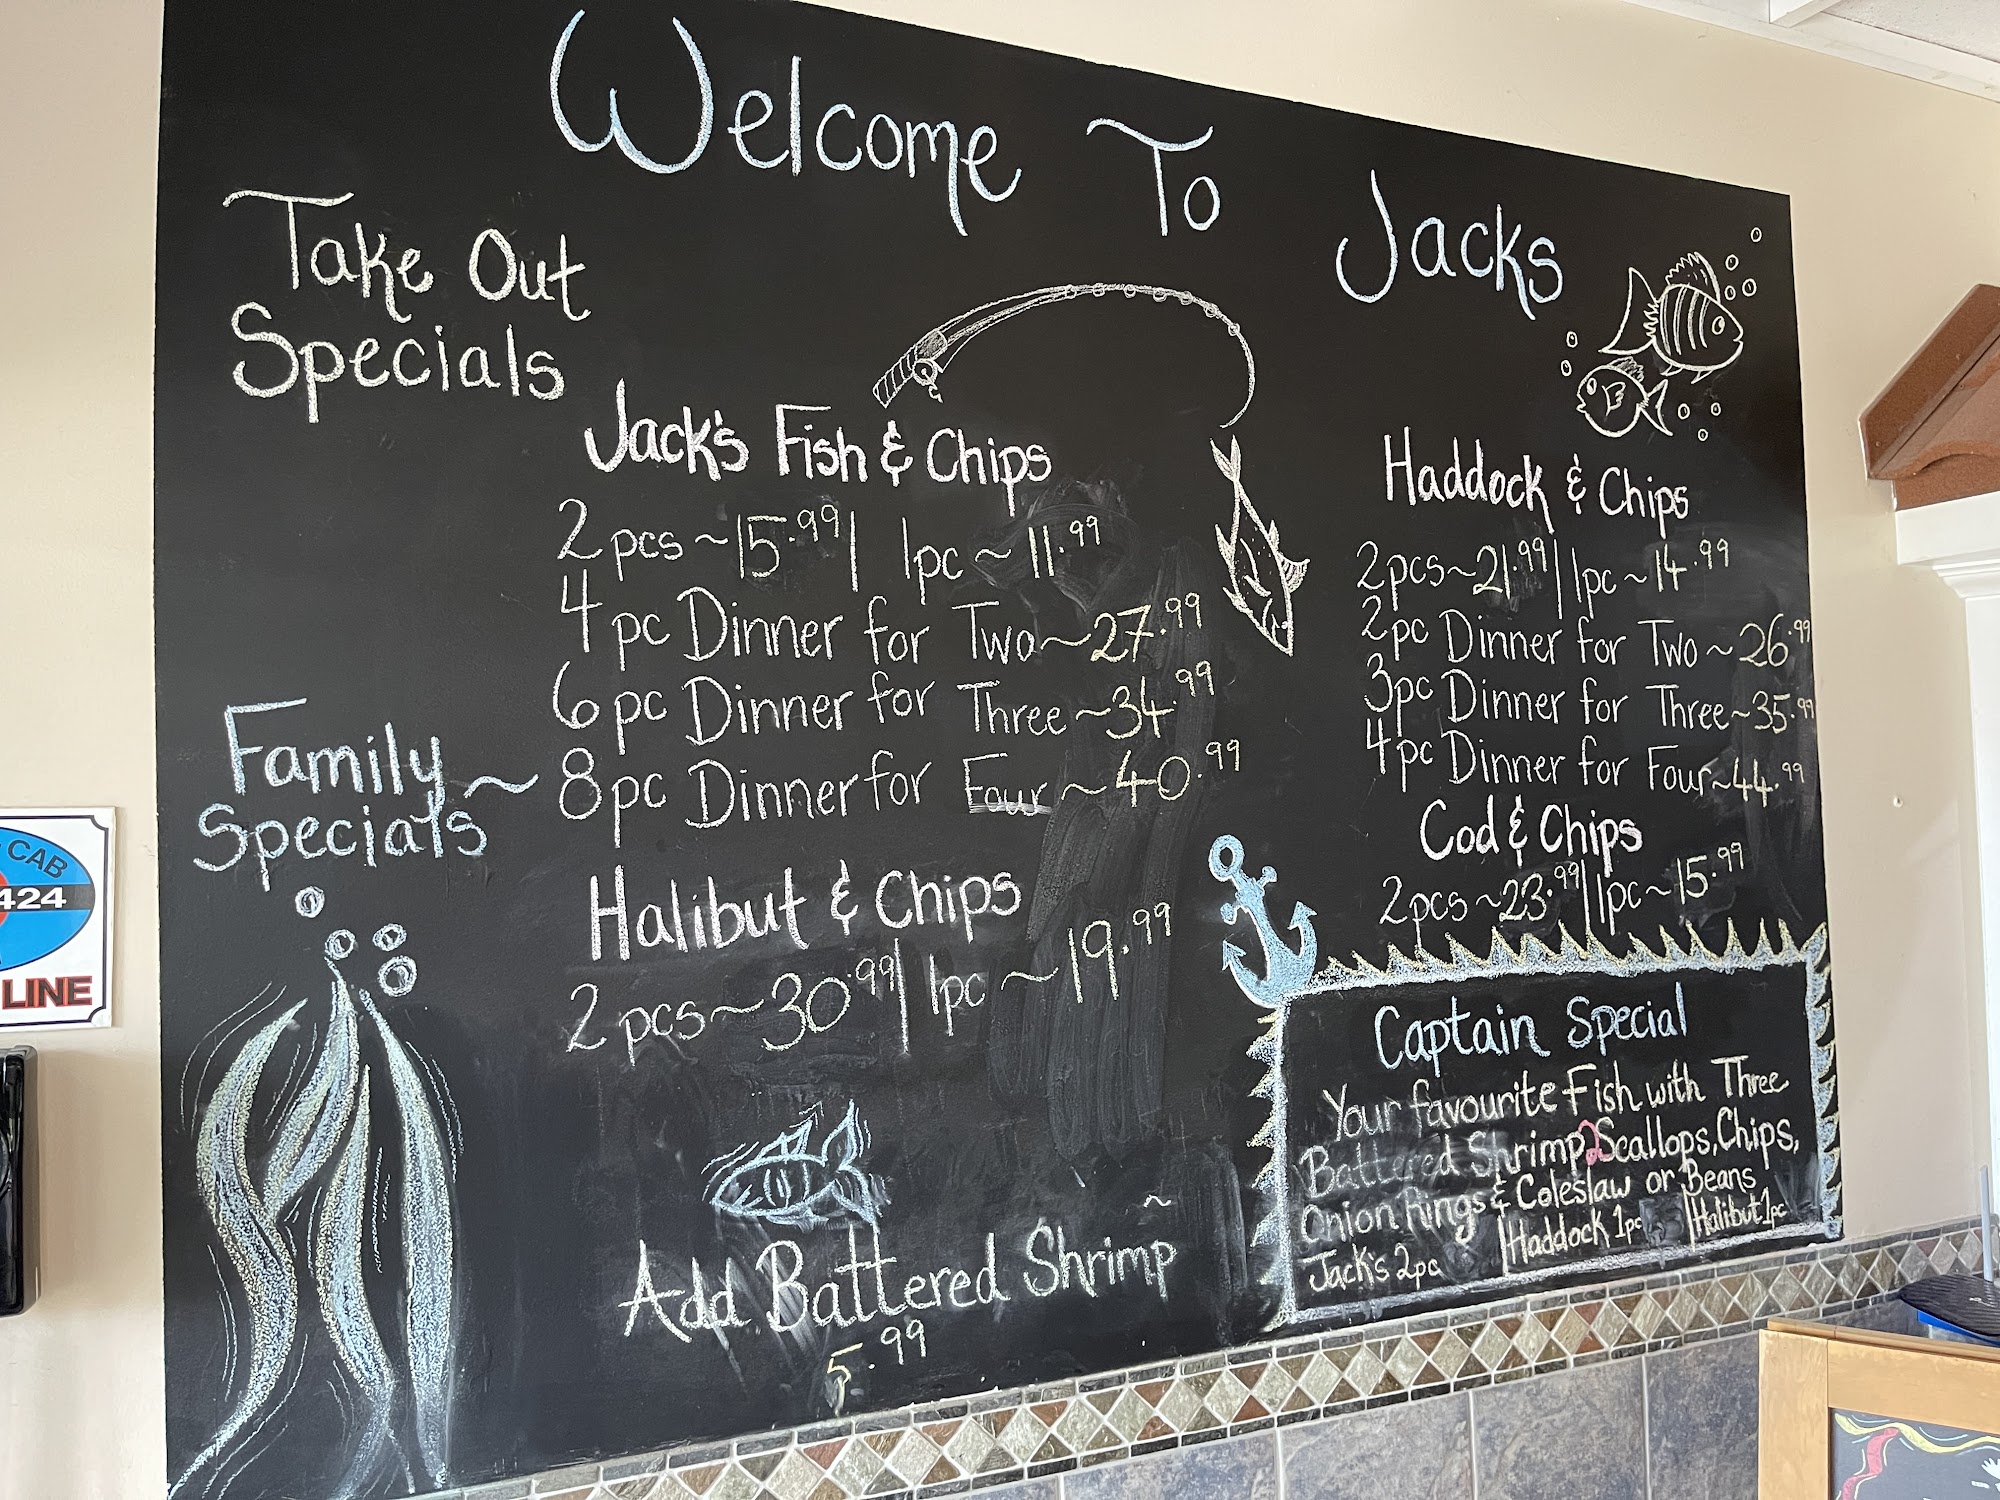 Welcome To Jacks
Take Out
Specials
Jack's Fish & Chips
2 pcs ~ 15.99 | 1pc ~ 11.99
4 pc Dinner for Two ~ 27.99
6 pc Dinner for Three ~ 34.99
Family
Specials ~
8 pc Dinner for Four ~ 40.99
Halibut & Chips
2 pcs ~ 30.99 | 1pc ~ 19.99
Add Battered Shrimp ~
5.99
Haddock & Chips
2pcs ~ 21.99 | 1pc ~ 14.99
2pc Dinner for Two ~ 26.99
3pc Dinner for Three ~ 35.99
4pc Dinner for Four ~ 44.99
Cod & Chips
2pcs ~ 23.99 | 1pc ~ 15.99
Captain Special
Your favourite Fish with Three
Battered Shrimp, 2 Scallops, Chips,
Onion Rings & Coleslaw or Beans
Jack's 2pc | Haddock 1pc | Halibut 1pc
CAB
424
LINE